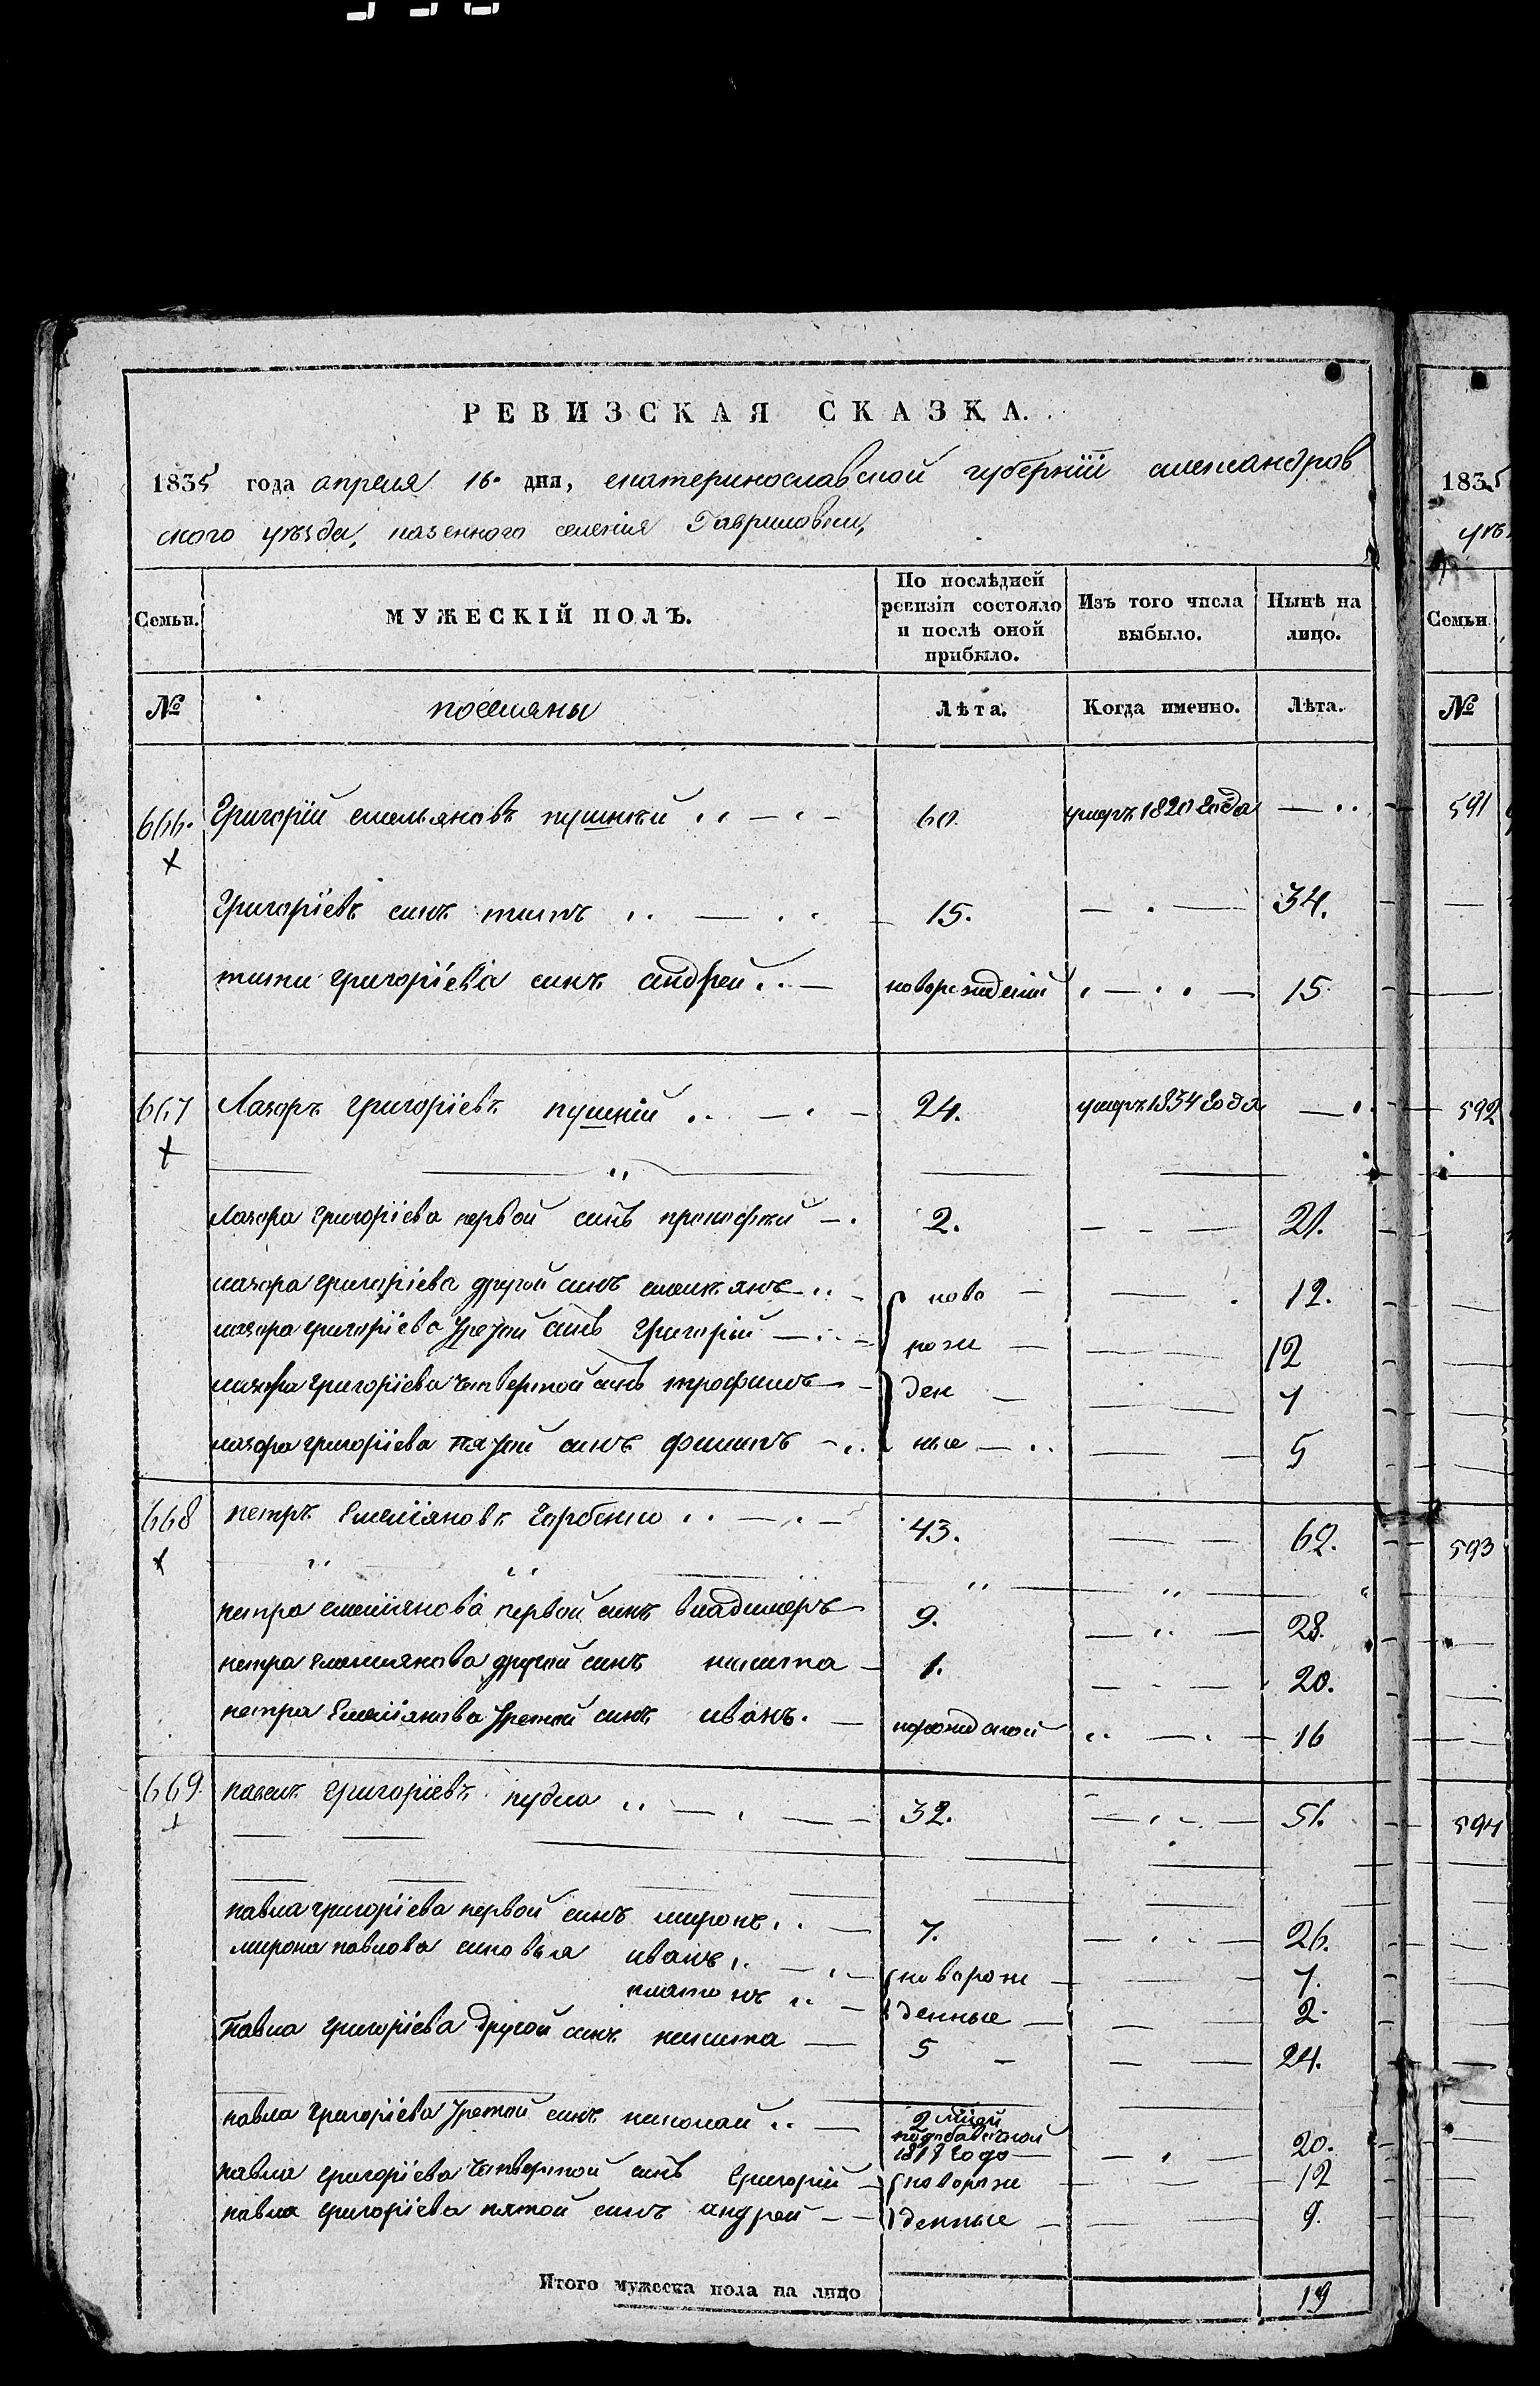 РЕВИЗСКАЯ СКАЗКА.
1835 года апреля 16. дня, екатеринославской губерніи александров
ского уѣзда, казенного селенія Гавриловки,
Семьи.
МУЖЕСКІЙ ПОЛЪ.
По послѣдней ревизіи состояло и послѣ оной прибыло.
Изъ того числа выбыло.
Нынѣ на лицо.
№
поселяны
Лѣта.
Когда именно.
Лѣта.
666. Григорій емельяновъ 60. умеръ 1820 года
григоріевъ синъ титъ 15. 34.
тита григоріева синъ андрей 15
667 Лазоръ григоріевъ 24. умеръ 1834 года
лазора григоріева первой синъ прокофій 2. 21.
лазора григоріева другой синъ емельянъ ново 12.
лазора григоріева третой синъ григорій рож 12
лазора григоріева четвертой синъ трофимъ ден 7
лазора григоріева пятой синъ филипъ ные 5
668 петръ Емеліановъ горбенко 43. 62.
петра емеліанова первой синъ владимеръ 9. 28.
петра емеліанова другой синъ никита 1. 20.
петра Емеліанова третой синъ иванъ. 16
669. павелъ григоріевъ пудла 32. 51.
павла григоріева первой синъ миронъ 7. 26.
мирона павлова синовья иванъ новорож 7.
платонъ денные 2.
Павла григоріева другой синъ никита 5 24.
павла григоріева третой синъ николай 20.
павла григоріева четвертой синъ григорій новорож 12
павла григоріева пятой синъ андрей денные 9.
Итого мужеска пола на лицо 19
1835
уѣ
Семьи
№
591
592
593
594